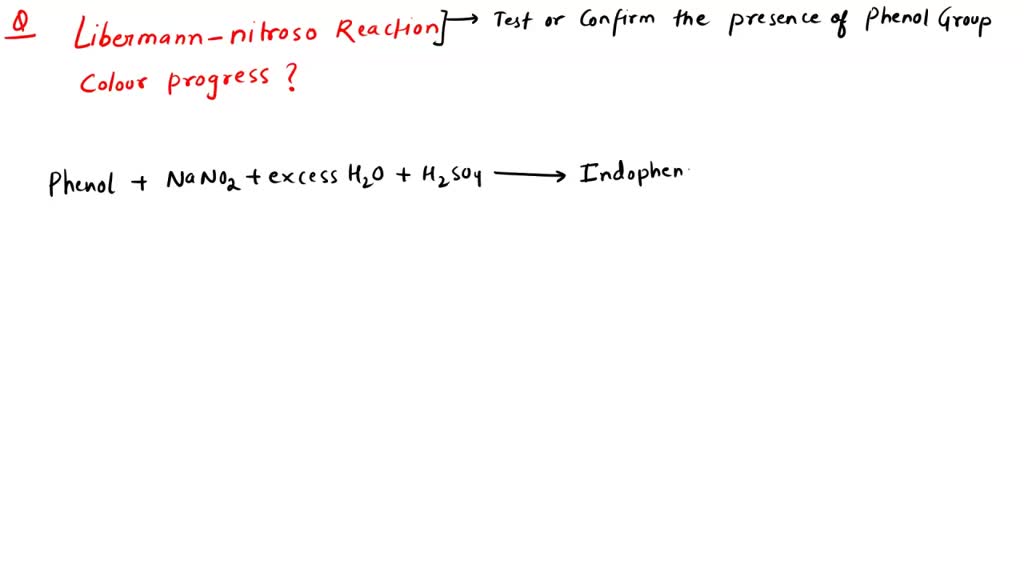 Q Libermann-nitroso Reaction] → Test or Confirm the presence of Phenol Group
Colour progress ?
Phenol + NaNO2 + excess H2O + H2SO4 → Indophen